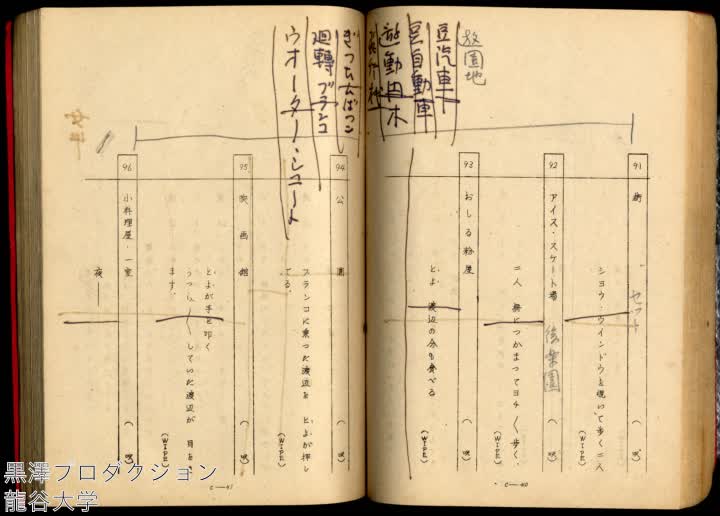 遊園地
豆汽車
豆自動車
遊動円木
ぎっちんばっこ
廻轉ブランコ
ウオーター・シュート
91 街 （ 喫 ）
セット
ショウ・ウインドウを覗いて歩く二人
92 アイス・スケート場
後楽園
二人 腰につかまってヨチ〱歩く。
(WIPE)
93 おしる粉屋
とよ 渡辺の分も食べる
(WIPE)
C—40
94 公園
ブランコに乗った渡辺を とよが押し
てる。
(WIPE)
95 映画館
とよが手を叩く
うつら〱していた渡辺が 目を
ます。
(WIPE)
96 小料理屋・一室
夜——
C—41
黒澤プロダクション
龍谷大学